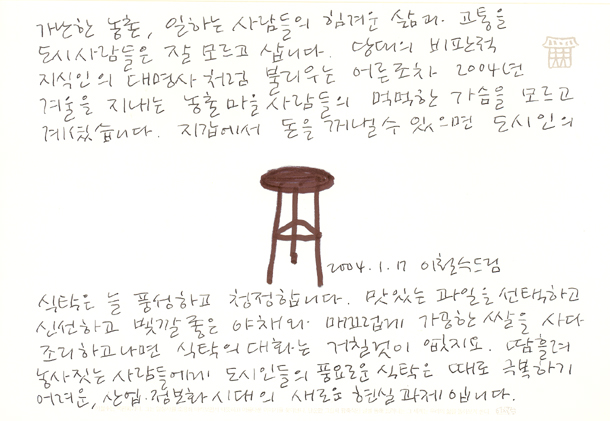 가난한 농촌, 일하는 사람들의 힘겨운 삶과 고통을
도시사람들은 잘 모르고 삽니다. 당대의 비판적
지식인의 대명사처럼 불리우는 어른조차 2004년
겨울을 지내는 농촌마을 사람들의 먹먹한 가슴을 모르고
계셨습니다. 지갑에서 돈을 꺼낼 수 있으면 도시인의
2004.1.17 이철수드림
식탁은 늘 풍성하고 청정합니다. 맛있는 과일을 선택하고
신선하고 빛깔 좋은 야채와 매끄럽게 가공한 쌀을 사다
조리하고나면 식탁의 대화는 거칠것이 없지요. 땀흘려
농사짓는 사람들에게 도시인들의 풍요로운 식탁은 때로 극복하기
어려운, 산업·정보화시대의 새로운 현실과제입니다.